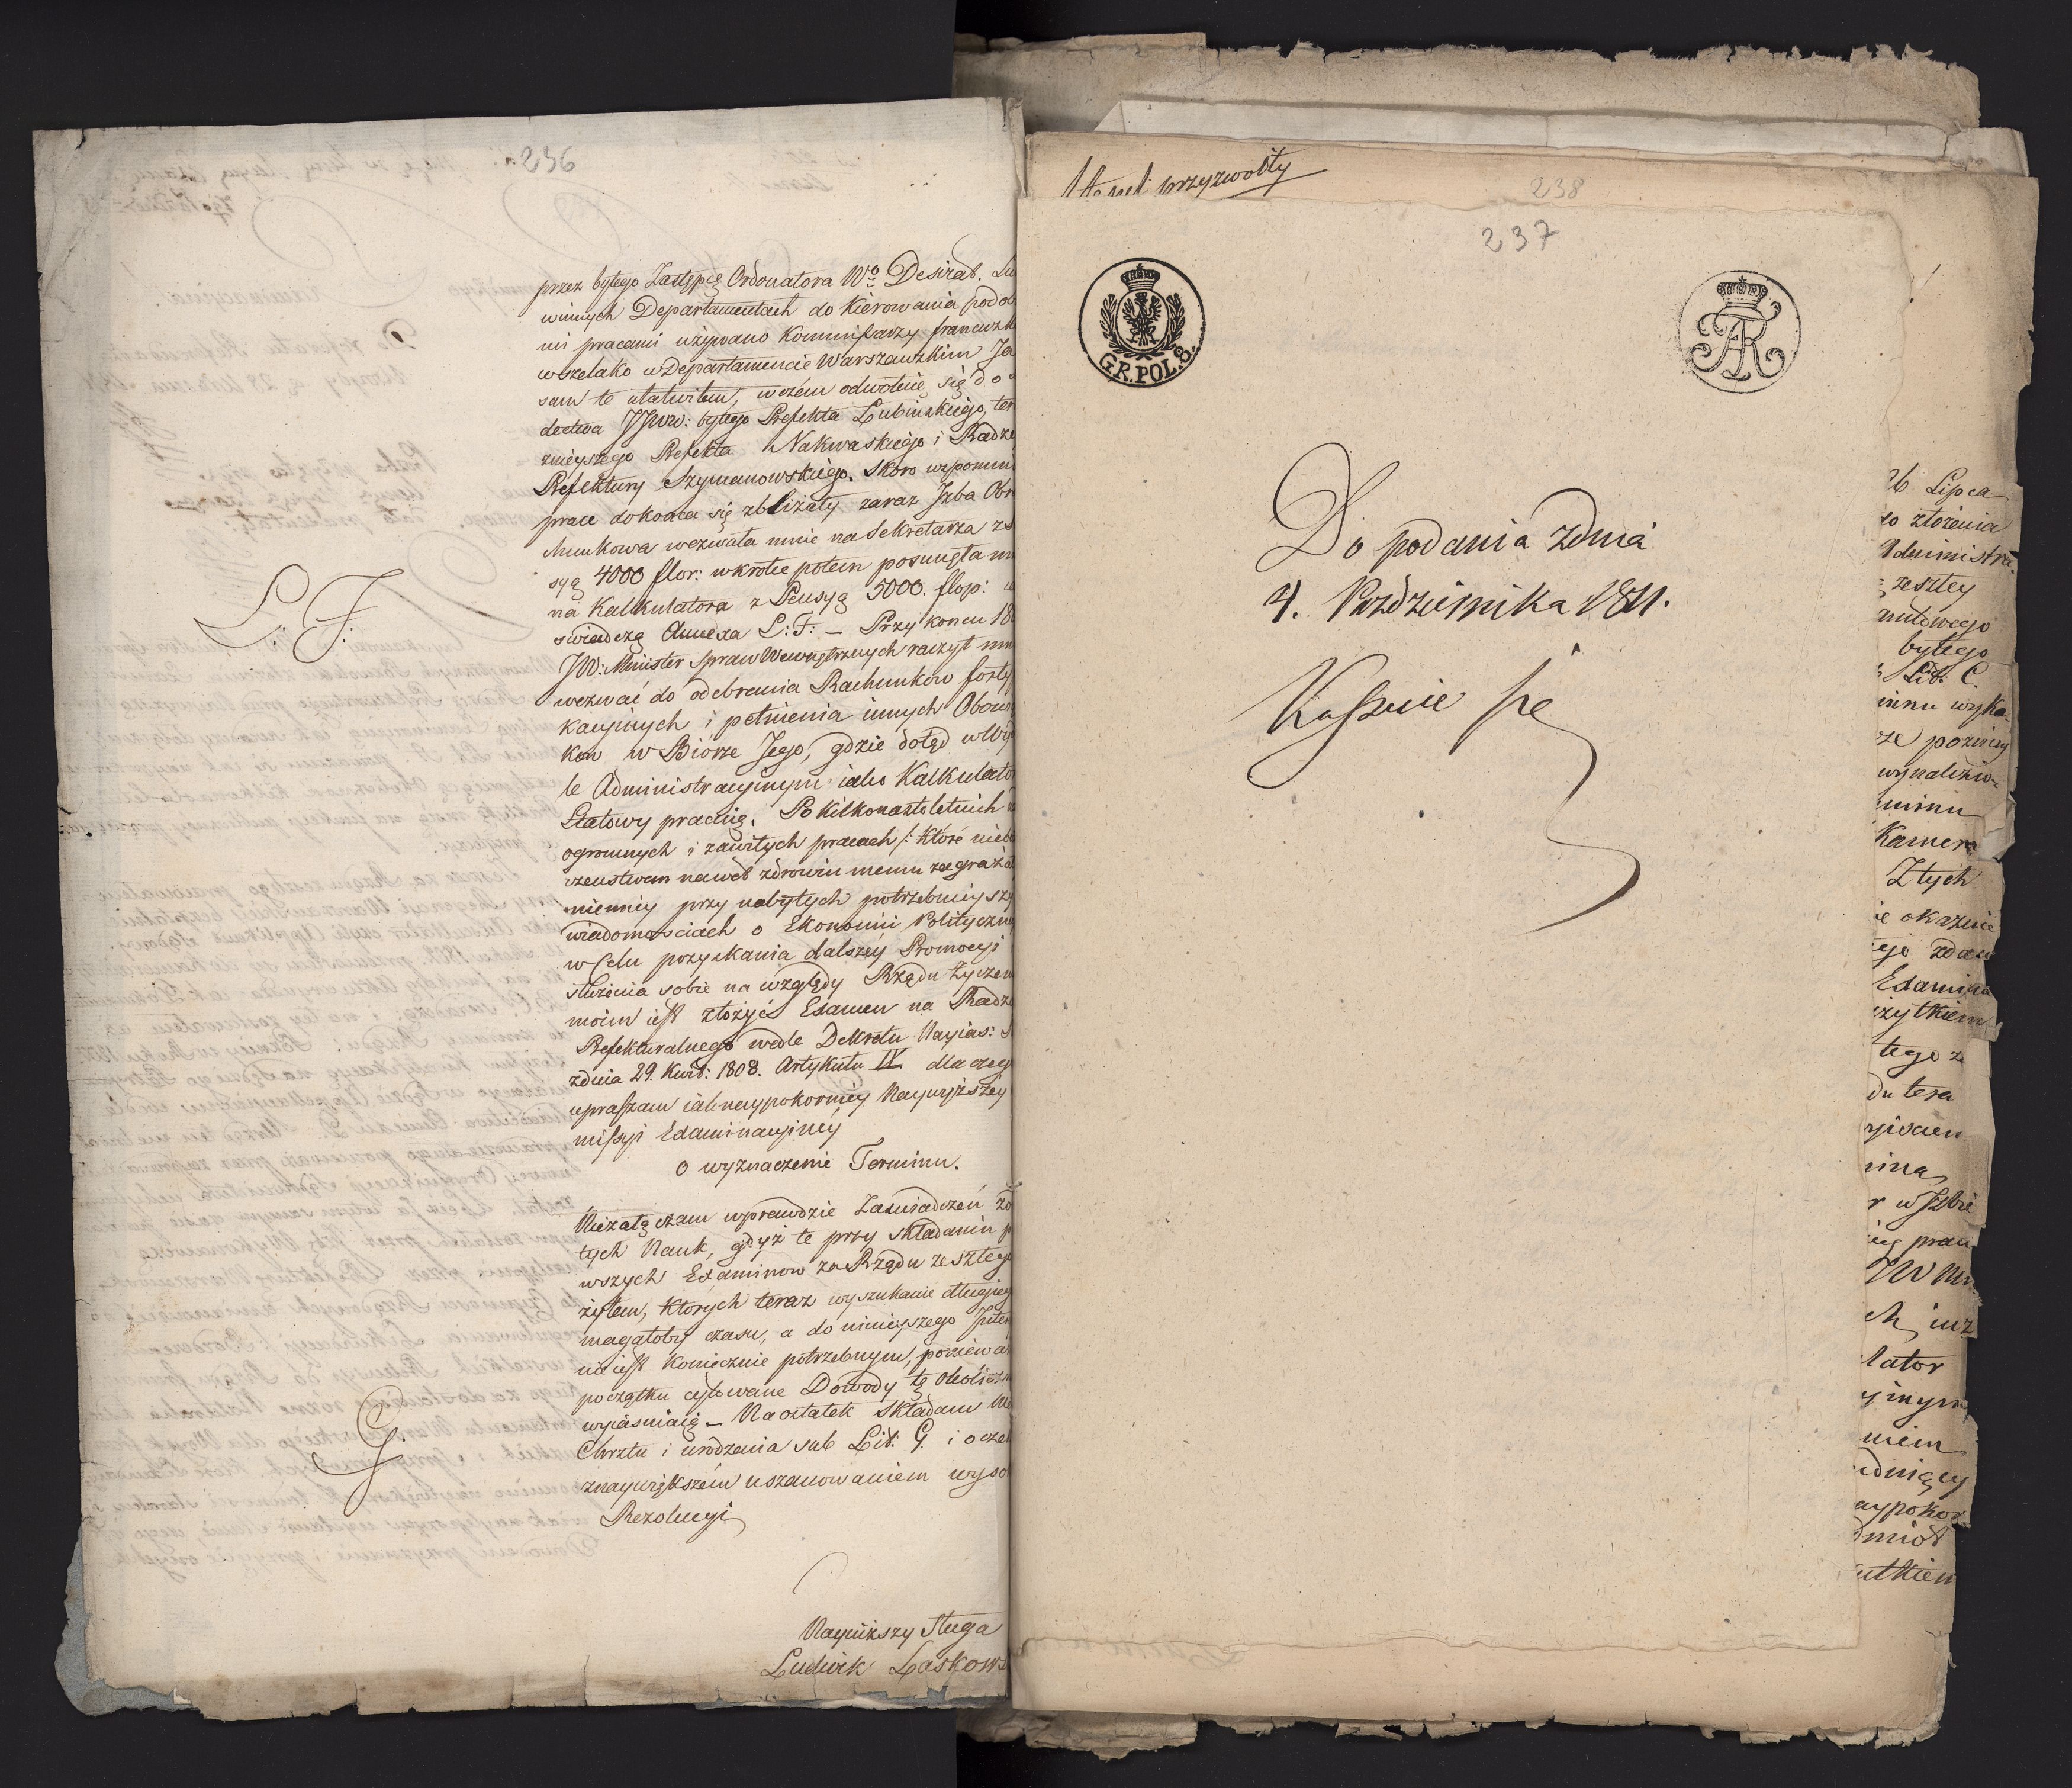 236
przez byłego Zastępcę Ordonatora Wo Desirat.
winnych Departamentach do kierowania podob
mi pracami używano Kommissarzy francuzk
wszelako w Departamencie Warszawskim Ja
sam te ułatwiłem, w czém odwołuię się do
dectwa JJWW: byłego Prefekta Łubińskiego, ter
znieyszego Prefekta Nakwaskiego i Radzc
Prefektury Szymanowskiego. Skoro wspomni
prace do końca się zbliżały zaraz Izba Obra
chunkowa wezwała mnie na Sekretarza z
syą 4000 flor: wkrotce potem posunęła m
na Kalkulatora z Pensyą 5000. flop:
L: F:
swiadczą Annexa L: F: — Przy koncu 18
JW: Minister Spraw Wewnętrznych raczył mn
wezwać do odebrania Rachunków forty
kacyinych i pełnienia innych Obow
kow w Biórze Jego, gdzie dotąd w Wy
le Administracyinym iako Kalkulato
Etatowy pracuię. Po kilkonastoletnich
ogromnych i zawiłych pracach /: które nieb
czenstwem nawet zdrowiu memu zagraża
mienniey przy nabytych potrzebnieysz
wiadomosciach o Ekonomii Polityczn
w Celu pozyskania dalszéy Promocyi
służenia sobie na względy Rządu życzen
moim iest złożyć Examen na Radzc
Prefekturalnego wedle Dekretu Nayias:
zdnia 29. Kwiet: 1808. Artykułu IV dla czeg
upraszam iak naypokorniey Naywyższey
missyi Examinacyiney
o wyznaczenie Terminu.
Niezałączam wprawdzie Zaswiadczeń zo
tych Nauk, gdyż te przy składaniu p
wszych Examinow za Rządu zeszłeg
żyłem, których teraz wyszukanie dłuższeg
magałoby czasu, a do ninieyszego
nieiest koniecznie potrzebnym, poniewa
początku cytowane Dowody tę okoliczn
wyiasniaią — Na ostatek składam
G.
Chrztu i urodzenia sub Lit: G. i ocze
znaywiększém uszanowaniem wyso
Rezolucyi
Nayniższy Sługa
Ludwik Laskows
przyzwoity
238
237
GR.POL.8.
Do podania zdnia
4. Pazdziernika 1811.
Kassuie się
26. Lipca
o złożenia
Administra
zeszłey
byłego
Lit: C.
winu wyka
że pozniey
wynalezio
minu
Kamera
Z tych
ie okazuie
ego zdaw
Examina
żytkiem
tego z
du tera
nina
r w Izbie
ch iuż
lator
yinym
niem
dniący
aypokor
dmiot
utkiem